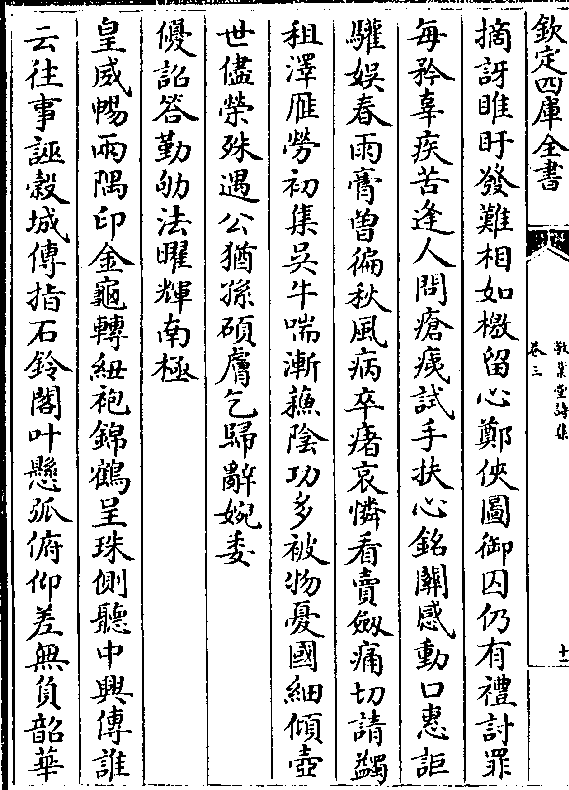 欽定四庫全書
敬業堂詩集
卷三
十二
摘訝睢盱發難相如檄留心鄭俠圖御囚仍有禮討罪
每矜辜疾苦逢人問瘡痍試手扶心銘闗感動口惠詎
驩娱春雨膏曽徧秋風病卒瘏哀憐看賣劔痛切請蠲
租澤雁勞初集吳牛喘漸蘓陰功多被物憂國細傾壺
世儘榮殊遇公猶孫碩膚乞歸辭婉委
優詔答勤劬法曜輝南極
皇威暢兩隅印金龜轉紐袍錦鶴呈珠側聽中興傳誰
云往事誣榖城傳指石鈴閣叶懸弧俯仰差無負韶華